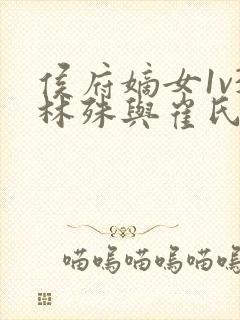 侯府嫡女1v
林殊與崔民
喵嗚喵嗚喵嗚